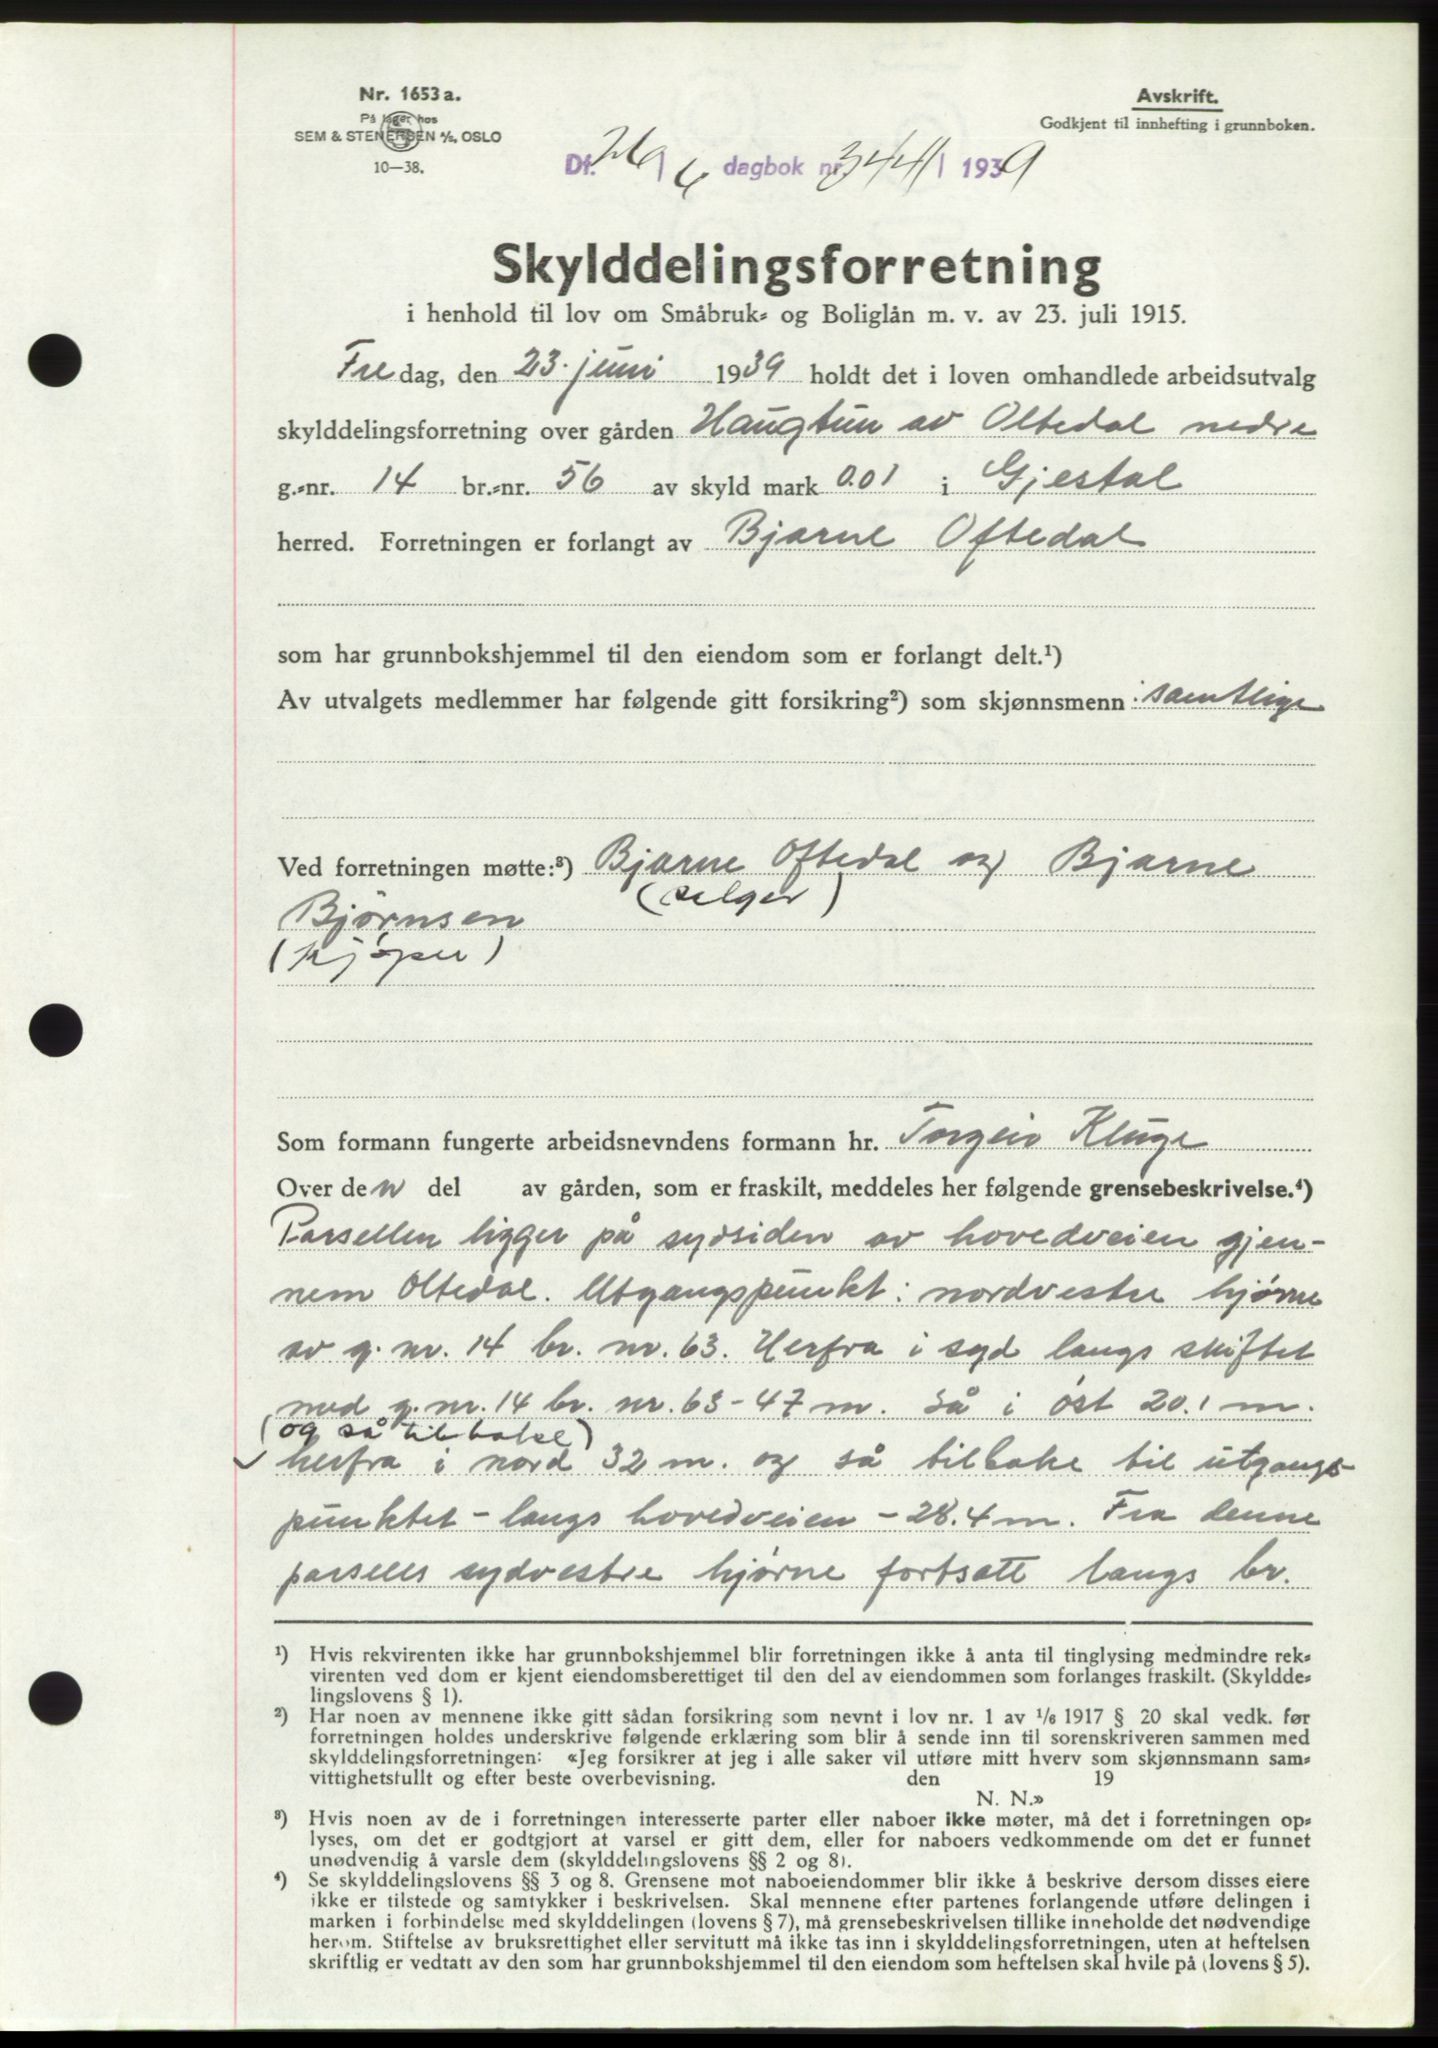 Nr. 1653 a.
På lager hos
SEM & STENERSEN A/S, OSLO
10—38.
Avskrift.
Godkjent til innhefting i grunnboken.
Df. 26/6 dagbok nr. 3441 1939
Skylddelingsforretning
i henhold til lov om Småbruk- og Boliglån m. v. av 23. juli 1915.
Fredag, den 23. juni 1939 holdt det i loven omhandlede arbeidsutvalg
skylddelingsforretning over gården Haugtun av Oltedal nedre
g.-nr. 14 br.-nr. 56 av skyld mark 0.01 i Gjestal
herred. Forretningen er forlangt av Bjarne Oftedal
som har grunnbokshjemmel til den eiendom som er forlangt delt.¹)
Av utvalgets medlemmer har følgende gitt forsikring²) som skjønnsmenn: samtlige
Ved forretningen møtte:³) Bjarne Oftedal og Bjarne
(selger)
Bjørnsen
(kjøper)
Som formann fungerte arbeidsnevndens formann hr. Torgeir Kluge
Over den del av gården, som er fraskilt, meddeles her følgende grensebeskrivelse.⁴)
Parsellen ligger på sydsiden av hovedveien gjen-
nem Oltedal. Utgangspunkt: nordvestre hjørne
av g. nr. 14 br. nr. 63. Herfra i syd langs skiftet
med g. nr. 14 br. nr. 63 - 47 m. Så i øst 20.1 m.
(og så tilbake)
herfra i nord 32 m. og så tilbake til utgangs-
punktet - langs hovedveien - 28.4 m. Fra denne
parsells sydvestre hjørne fortsatt langs br.
¹) Hvis rekvirenten ikke har grunnbokshjemmel blir forretningen ikke å anta til tinglysing medmindre rek-
virenten ved dom er kjent eiendomsberettiget til den del av eiendommen som forlanges fraskilt. (Skyldde-
lingslovens § 1).
²) Har noen av mennene ikke gitt sådan forsikring som nevnt i lov nr. 1 av 1/6 1917 § 20 skal vedk. før
forretningen holdes underskrive følgende erklæring som blir å sende inn til sorenskriveren sammen med
skylddelingsforretningen: «Jeg forsikrer at jeg i alle saker vil utføre mitt hverv som skjønnsmann sam-
vittighetsfullt og efter beste overbevisning. den 19
N. N.»
³) Hvis noen av de i forretningen interesserte parter eller naboer ikke møter, må det i forretningen op-
lyses, om det er godtgjort at varsel er gitt dem, eller for naboers vedkommende om det er funnet
unødvendig å varsle dem (skylddelingslovens §§ 2 og 8).
⁴) Se skylddelingslovens §§ 3 og 8. Grensene mot naboeiendommer blir ikke å beskrive dersom disses eiere
ikke er tilstede og samtykker i beskrivelsen. Skal mennene efter partenes forlangende utføre delingen i
marken i forbindelse med skylddelingen (lovens § 7), må grensebeskrivelsen tillike inneholde det nødvendige
herom. Stiftelse av bruksrettighet eller servitutt må ikke tas inn i skylddelingsforretningen, uten at heftelsen
skriftlig er vedtatt av den som har grunnbokshjemmel til den eiendom som heftelsen skal hvile på (lovens § 5).